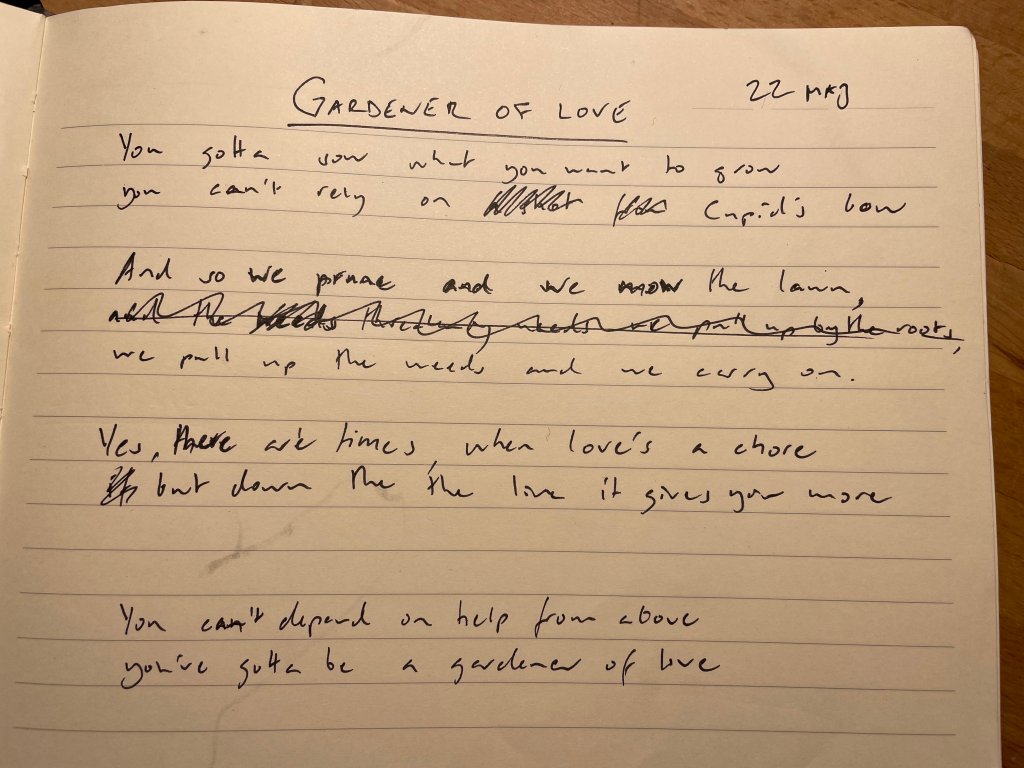 GARDENER OF LOVE
22 MAJ
You gotta sow what you want to grow
you can't rely on Cupid's bow
And so we prune and we mow the lawn,
and the weeds we pull up by the roots,
we pull up the weeds and we carry on.
Yes, there are times, when love's a chore
but down the the line it gives you more
You can't depend on help from above
you've gotta be a gardener of love